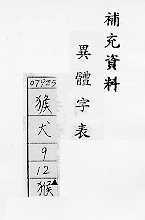 補充資料
異體字表
07935
猴
犬
9
12
猴